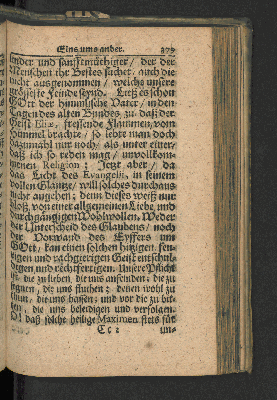 Eins ums ander. 399
linder und sanfftmüthiger / der der
Menschen ihr Bestes suchet, auch die
nicht ausgenommen / welche unsere
grösseste Feinde seynd. Ließ es schon
GOtt der himmlische Vater / in den
Tagen des alten Bundes zu / daß der
Geist Eliæ, fressende Flammen, vom
Himmel brachte / so lebte man doch
dazumahl nur noch, als unter einer,
daß ich so reden mag / unvollkom-
menen Religion; Jetzt aber / da
das Licht des Evangelii, in seinem
vollen Glantze / will solches durchaus
nicht angehen; denn dieses weiß nur
bloß, von einer allgemeinen Liebe und
durchgängigen Wohlwollen. Weder
der Unterscheid des Glaubens / noch
der Vorwand des Eyffers um
GOtt, kan einen solchen hitzigen feu-
rigen und rachgierigen Geist entschul-
digen und rechtfertigen. Unsere Pflicht
ist, die zu lieben, die uns anfeinden; die zu
segnen, die uns fluchen; denen wohl zu
thun, die uns hassen; und vor die zu bit-
ten, die uns beleidigen und verfolgen.
O! daß solche heilige Maximen stets für
Cc 2 un-